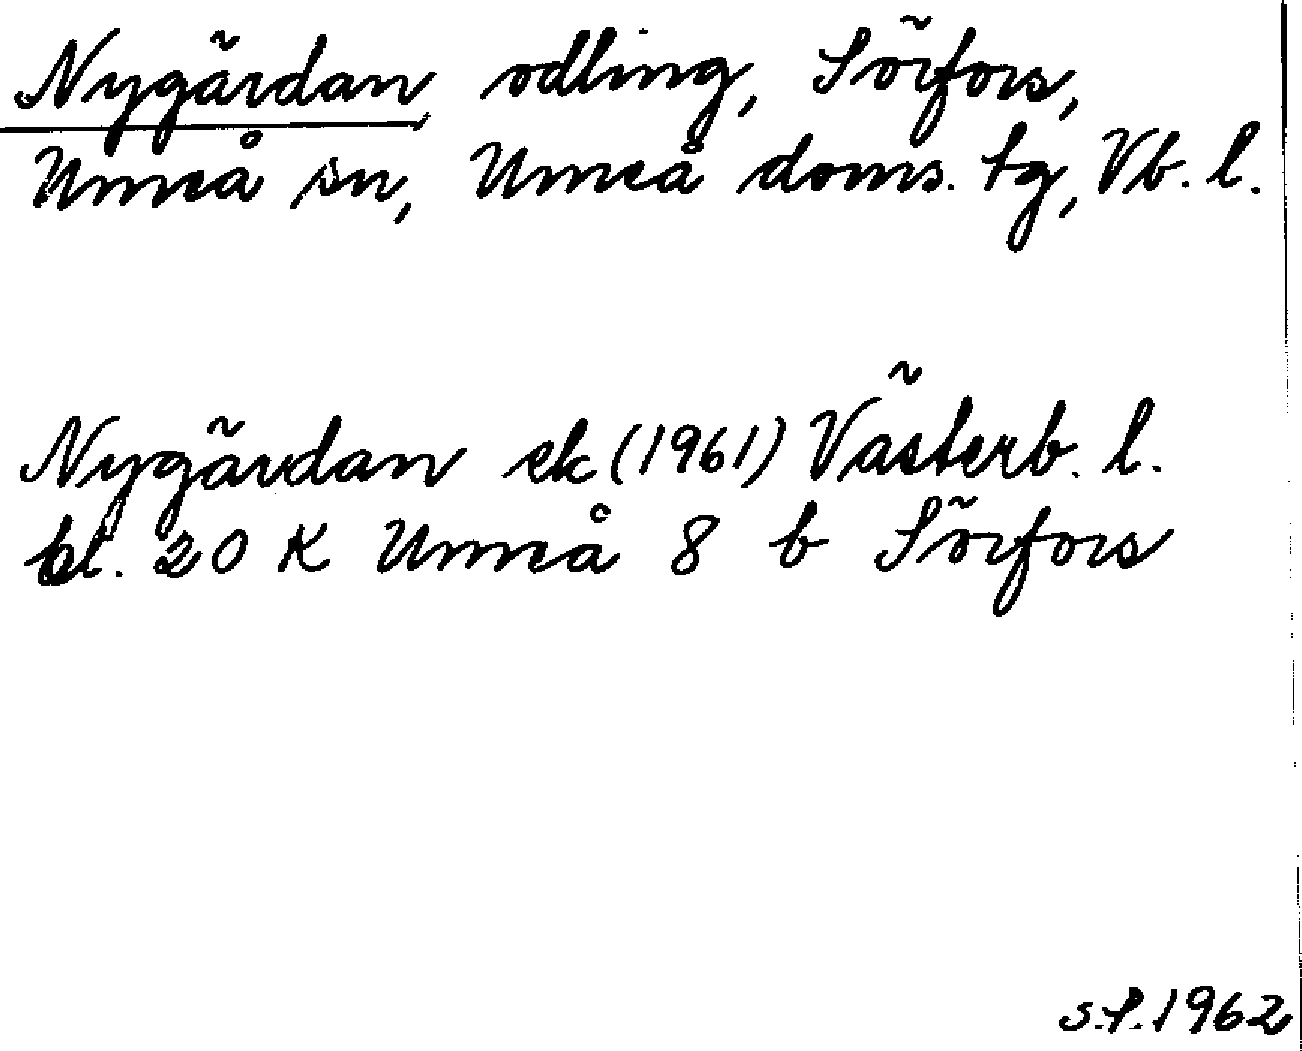 Nygärdan odling, Sörfors,
Umeå sn, Umeå doms. tg, Vb. l.
Nygärdan ek (1961) Västerb. l.
bl. 20 K Umeå 8 b Sörfors
s.f. 1962